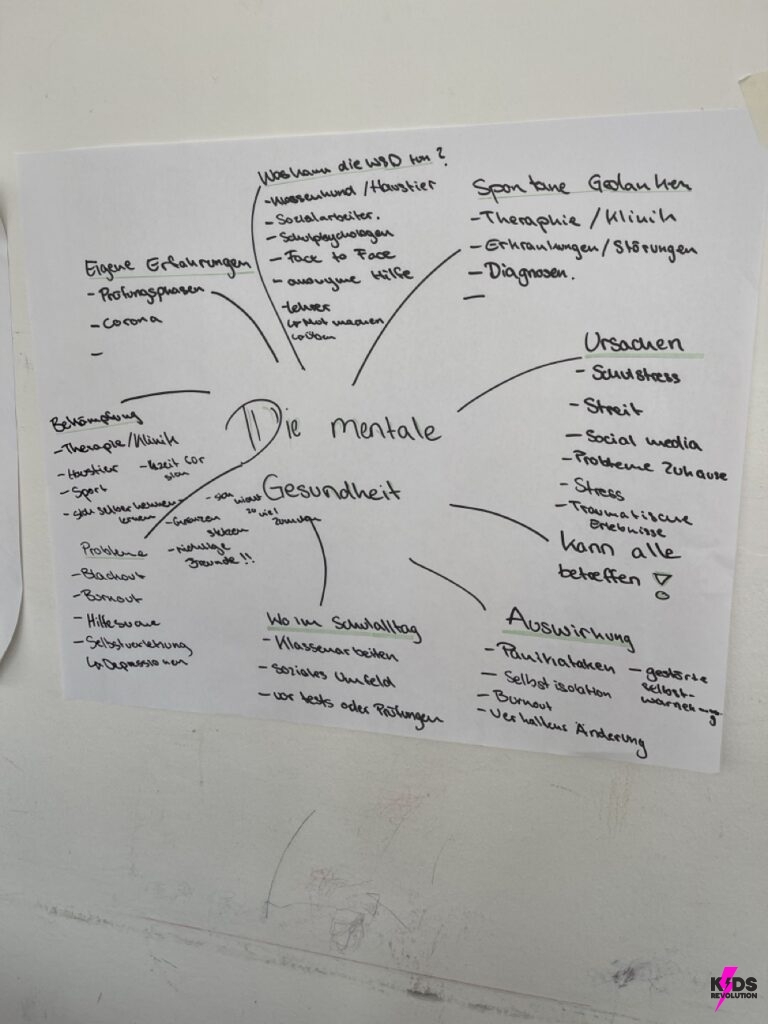 Die mentale
Gesundheit
Was kann die WSD tun?
- Klassenhund / Haustier
- Socialarbeiter.
- Schulpsychologen
- Face to Face
- anonyme Hilfe
- Lehrer
↳ Mut machen
↳ üben
Spontane Gedanken
- Theraphie / Klinik
- Erkrankungen / Störungen
- Diagnosen.
-
Ursachen
- Schulstress
- Streit
- Social media
- Probleme Zuhause
- Stress
- Traumatische
Erlebnisse
kann alle
betreffen !
Auswirkung
- Panikataken
- Selbstisolation
- Burnout
- Verhaltens Änderung
- gestörte
selbst-
warnehmung
Wo im Schulalltag
- Klassenarbeiten
- soziales Umfeld
- vor tests oder Prüfungen
Probleme
- Blackout
- Burnout
- Hilfesuche
- Selbstverletzung
↳ Depressionen
Bekämpfung
- Therapie / Klinik
- Haustier
- Sport
- sich selber kennen-
lernen
- Zeit für
sich
- Grenzen
setzen
- richtige
Freunde !!
- sich nicht
zu viel
zumuten
Eigene Erfahrungen
- Prüfungsphasen
- Corona
-
KIDS
REVOLUTION